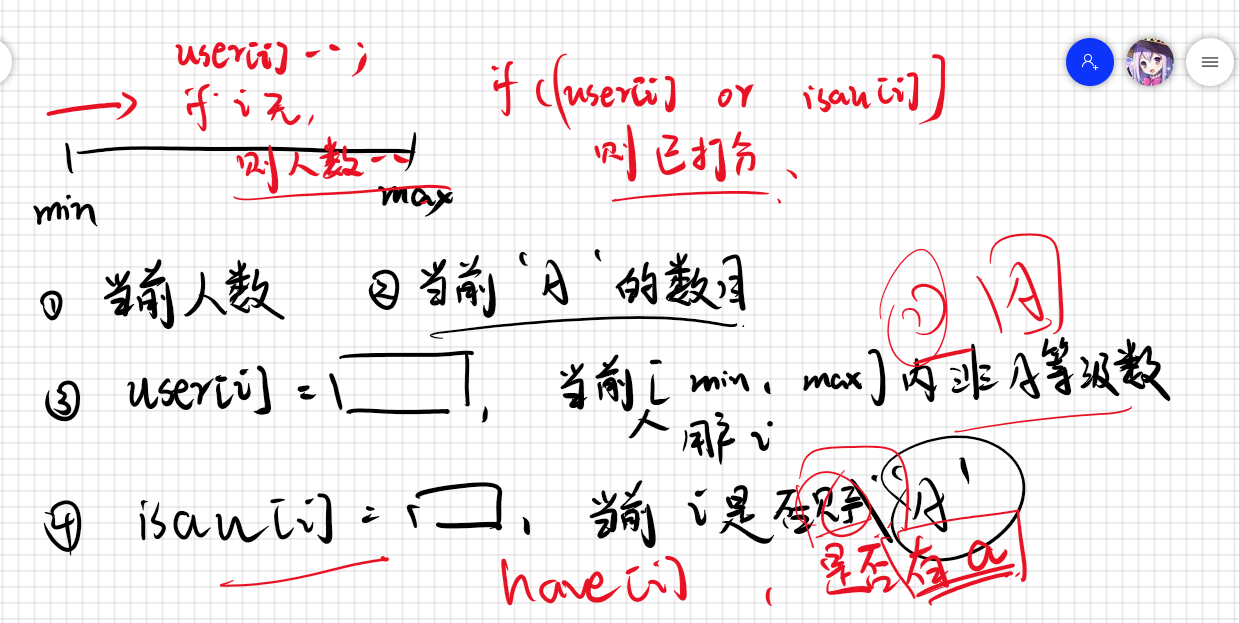 user[i]--;
if i 无,
则人数--
if ((user[i] or isau[i]]
则已打分、
min
max
① 当前人数 ② 当前'A'的数目
A
③ user[i] = , 当前[min, max]内非A等级数
人 用户i
④ isau[i] = , 当前 i是否 'A'
have[i] , 是否有a